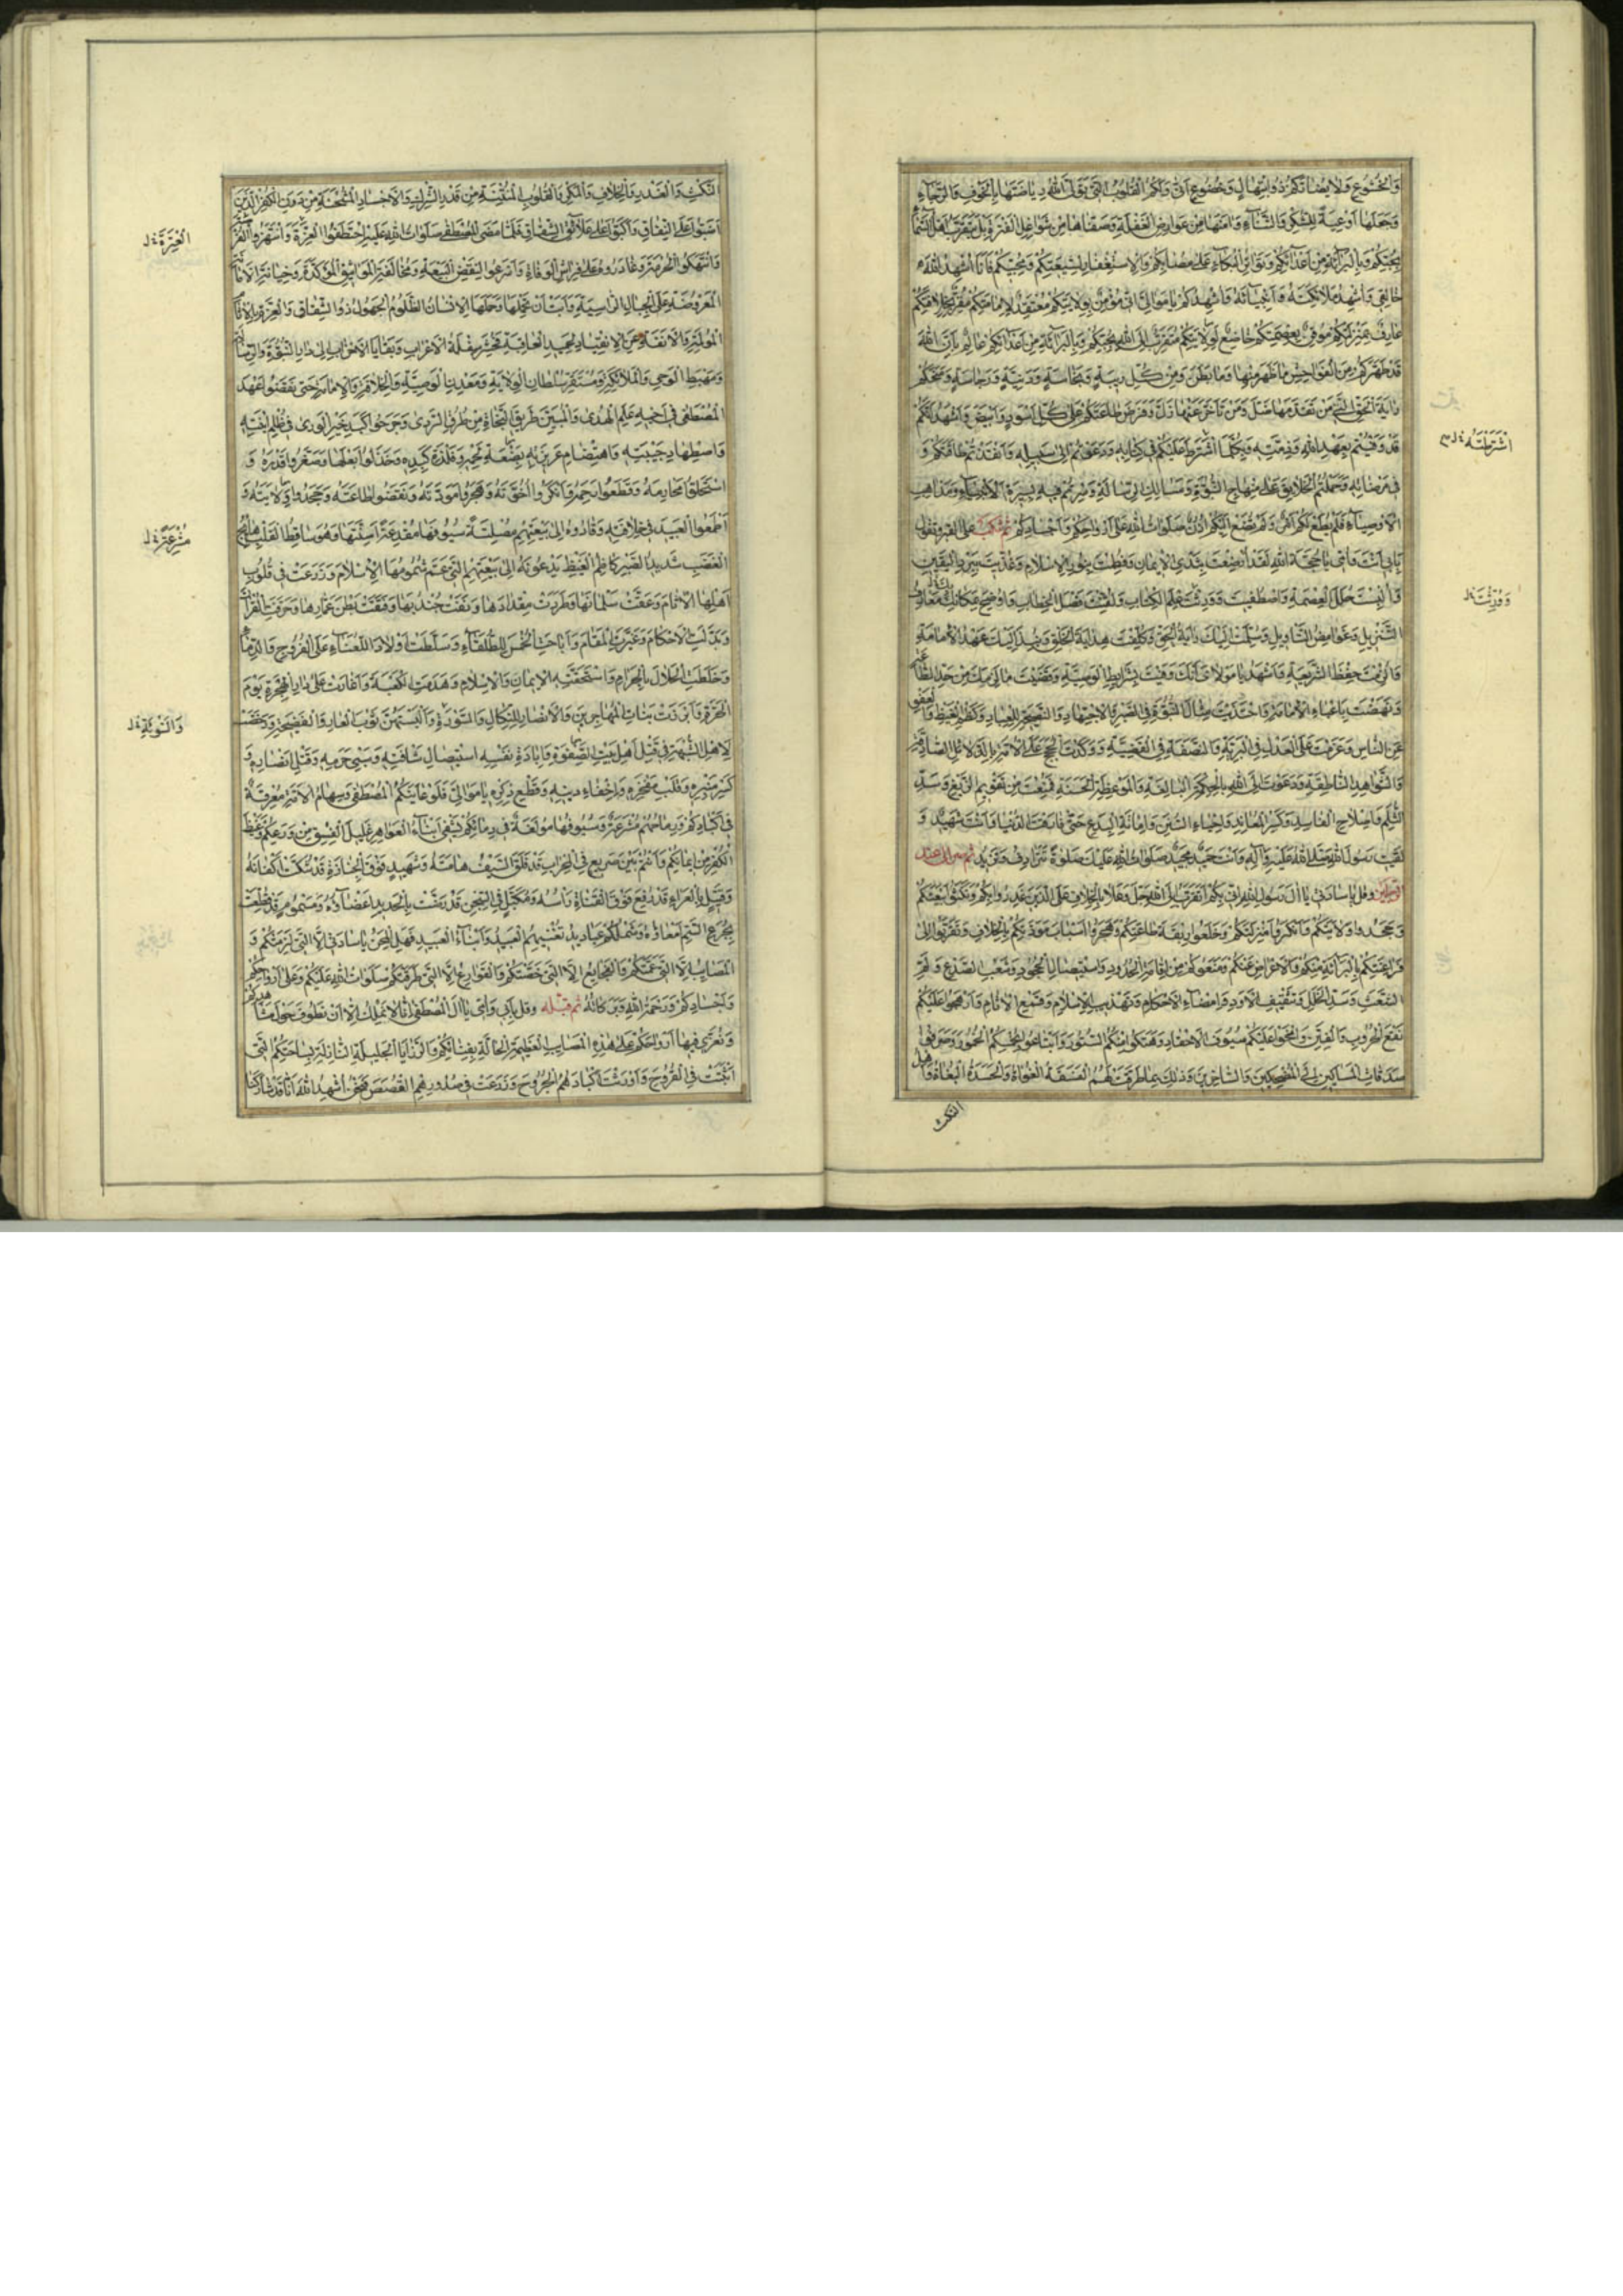 وَالْخُشُوعِ وَلَا يُضَادُّكُمْ ذُو ابْتِهَالٍ وَخُضُوعٍ اَنّى وَلَكُمُ الْقُلُوبُ الَّتِي تَوَلَّى اللّٰهُ رِيَاضَتَهَا بِالْخَوْفِ وَالرَّجَاءِ
وَجَعَلَهَا اَوْعِيَةً لِلشُّكْرِ وَالثَّنَاءِ وَامَنَهَا مِنْ عَوَارِضِ الْغَفْلَةِ وَصَفَّاهَا مِنْ شَوَاغِلِ الْفَتْرَةِ بَلْ يَتَقَرَّبُ اَهْلُ السَّمَاءِ
بِحُبِّكُمْ وَبِالْبَرَاءَةِ مِنْ اَعْدَائِكُمْ وَتَوَاتُرِ الْبُكَاءِ عَلى مُصَابِكُمْ وَالِاسْتِغْفَارِ لِشِيعَتِكُمْ وَمُحِبِّيكُمْ فَاَنَا اُشْهِدُ اللّٰهَ
خَالِقِي وَاُشْهِدُ مَلَائِكَتَهُ وَاَنْبِيَاءَهُ وَاُشْهِدُكُمْ يَا مَوَالِيَّ اَنّى مُؤْمِنٌ بِوِلَايَتِكُمْ مُعْتَقِدٌ لِاِمَامَتِكُمْ مُقِرٌّ بِخِلَافَتِكُمْ
عَارِفٌ بِمَنْزِلَتِكُمْ مُوقِنٌ بِعِصْمَتِكُمْ خَاضِعٌ لِوِلَايَتِكُمْ مُتَقَرِّبٌ اِلَى اللّٰهِ بِحُبِّكُمْ وَبِالْبَرَاءَةِ مِنْ اَعْدَائِكُمْ عَالِمٌ بِاَنَّ اللّٰهَ
قَدْ طَهَّرَكُمْ مِنَ الْفَوَاحِشِ مَا ظَهَرَ مِنْهَا وَمَا بَطَنَ وَمِنْ كُلِّ رِيبَةٍ وَنَجَاسَةٍ وَدَنِيَّةٍ وَرَجَاسَةٍ وَمَنَحَكُمْ
رَايَةَ الْحَقِّ الَّتِي مَنْ تَقَدَّمَهَا ضَلَّ وَمَنْ تَاَخَّرَ عَنْهَا زَلَّ وَفَرَضَ طَاعَتَكُمْ عَلى كُلِّ اَسْوَدَ وَاَبْيَضَ وَاَشْهَدُ اَنَّكُمْ
قَدْ وَفَيْتُمْ بِعَهْدِ اللّٰهِ وَذِمَّتِهِ وَبِكُلِّ مَا اشْتَرَطَ عَلَيْكُمْ فِي كِتَابِهِ وَدَعَوْتُمْ اِلى سَبِيلِهِ وَاَنْفَدْتُمْ طَاقَتَكُمْ
اشْتَرَطَهُ
فِي مَرْضَاتِهِ وَحَمَلْتُمُ الْخَلَائِقَ عَلى مِنْهَاجِ النُّبُوَّةِ وَمَسَالِكِ الرِّسَالَةِ وَسِرْتُمْ فِيهِ بِسِيرَةِ الْاَنْبِيَاءِ وَمَذَاهِبِ
الْاَوْصِيَاءِ فَلَمْ يُطَعْ لَكُمْ اَمْرٌ وَلَمْ تُصْغَ اِلَيْكُمْ اُذُنٌ صَلَوَاتُ اللّٰهِ عَلى اَرْوَاحِكُمْ وَاَجْسَادِكُمْ ثم تنكب على القبر وتقول
بِاَبِي اَنْتَ وَاُمِّي يَا حُجَّةَ اللّٰهِ لَقَدْ اُرْضِعْتَ بِثَدْيِ الْاِيمَانِ وَفُطِمْتَ بِنُورِ الْاِسْلَامِ وَغُذِّيتَ بِبَرْدِ الْيَقِينِ
وَاُلْبِسْتَ حُلَلَ الْعِصْمَةِ وَاصْطُفِيتَ وَوُرِّثْتَ عِلْمَ الْكِتَابِ وَلُقِّنْتَ فَصْلَ الْخِطَابِ وَاُوضِحَ بِمَكَانِكَ مَعَارِفُ
التَّنْزِيلِ وَغَوَامِضُ التَّاْوِيلِ وَسُلِّمَتْ اِلَيْكَ رَايَةُ الْحَقِّ وَكُلِّفْتَ هِدَايَةَ الْخَلْقِ وَنُبِذَ اِلَيْكَ عَهْدُ الْاِمَامَةِ
وَاُلْزِمْتَ حِفْظَ الشَّرِيعَةِ وَاَشْهَدُ يَا مَوْلَايَ اَنَّكَ وَفَيْتَ بِشَرَائِطِ الْوَصِيَّةِ وَقَضَيْتَ مَا لَزِمَكَ مِنْ حَدِّ الطَّاعَةِ
وَنَهَضْتَ بِاَعْبَاءِ الْاِمَامَةِ وَاحْتَذَيْتَ مِثَالَ النُّبُوَّةِ فِي الصَّبْرِ وَالِاجْتِهَادِ وَالنَّصِيحَةِ لِلْعِبَادِ وَكَظْمِ الْغَيْظِ وَالْعَفْوِ
عَنِ النَّاسِ وَعَزَمْتَ عَلَى الْعَدْلِ فِي الْبَرِيَّةِ وَالنَّصَفَةِ فِي الْقَضِيَّةِ وَوَكَّدْتَ الْحُجَجَ عَلَى الْاُمَّةِ بِالدَّلَائِلِ الصَّادِقَةِ
وَالشَّوَاهِدِ النَّاطِقَةِ وَدَعَوْتَ اِلَى اللّٰهِ بِالْحِكْمَةِ الْبَالِغَةِ وَالْمَوْعِظَةِ الْحَسَنَةِ فَمُنِعْتَ مِنْ تَقْوِيمِ الزَّيْغِ وَسَدِّ
الثُّلَمِ وَاِصْلَاحِ الْفَاسِدِ وَكَسْرِ الْمُعَانِدِ وَاِحْيَاءِ السُّنَنِ وَاِمَاتَةِ الْبِدَعِ حَتّى فَارَقْتَ الدُّنْيَا وَاَنْتَ شَهِيدٌ وَ
لَقِيتَ رَسُولَ اللّٰهِ صَلَّى اللّٰهُ عَلَيْهِ وَآلِهِ وَاَنْتَ حَمِيدٌ صَلَوَاتُ اللّٰهِ عَلَيْكَ تَتَرَادَفُ وَتَزِيدُ ثم صر الى عند
الرجلين وقل يَا سَادَتِي يَا آلَ رَسُولِ اللّٰهِ اِنّى بِكُمْ اَتَقَرَّبُ اِلَى اللّٰهِ جَلَّ وَعَلَا بِالْخِلَافِ عَلَى الَّذِينَ غَدَرُوا بِكُمْ وَنَكَثُوا بَيْعَتَكُمْ
وَجَحَدُوا وِلَايَتَكُمْ وَاَنْكَرُوا مَنْزِلَتَكُمْ وَخَلَعُوا رِبْقَةَ طَاعَتِكُمْ وَهَجَرُوا اَسْبَابَ مَوَدَّتِكُمْ وَتَقَرَّبُوا اِلى
فَرَاعِنَتِكُمْ بِالْبَرَاءَةِ مِنْكُمْ وَالْاِعْرَاضِ عَنْكُمْ وَمَنَعُوكُمْ مِنْ اِقَامَةِ الْحُدُودِ وَاسْتِيصَالِ الْجُحُودِ وَشَعْبِ الصَّدْعِ وَلَمِّ
الشَّعَثِ وَسَدِّ الْخَلَلِ وَتَثْقِيفِ الْاَوَدِ وَاِمْضَاءِ الْاَحْكَامِ وَتَهْذِيبِ الْاِسْلَامِ وَقَمْعِ الْاثَامِ وَاَرْهَجُوا عَلَيْكُمْ
نَقْعَ الْحُرُوبِ وَالْفِتَنِ وَاَنْحَوْا عَلَيْكُمْ سُيُوفَ الْاَحْقَادِ وَهَتَكُوا مِنْكُمُ السُّتُورَ وَابْتَاعُوا بِخُمْسِكُمُ الْخُمُورَ وَصَرَفُوا
صَدَقَاتِ الْمَسَاكِينِ اِلَى الْمُضْحِكِينَ وَالسَّاخِرِينَ وَذٰلِكَ بِمَا طَرَّقَتْ لَهُمُ الْفَسَقَةُ الْغُوَاةُ وَالْحَسَدَةُ الْبُغَاةُ اَهْلُ
النكث
النَّكْثِ وَالْغَدْرِ وَالْخِلَافِ وَالْمَكْرِ وَالْقُلُوبِ الْمُنْتِنَةِ مِنْ قَذَرِ الشِّرْكِ وَالْاَجْسَادِ الْمُشْحَنَةِ مِنْ دَرَنِ الْكُفْرِ الَّذِينَ
اَضَبُّوا عَلَى النِّفَاقِ وَاَكَبُّوا عَلى عَلَائِقِ الشِّقَاقِ فَلَمَّا مَضَى الْمُصْطَفى صَلَوَاتُ اللّٰهِ عَلَيْهِ اخْتَطَفُوا الْغِرَّةَ وَانْتَهَزُوا الْفُرْصَةَ
وَانْتَهَكُوا الْحُرْمَةَ وَغَادَرُوهُ عَلى فِرَاشِ الْوَفَاةِ وَاَسْرَعُوا لِنَقْضِ الْبَيْعَةِ وَمُخَالَفَةِ الْمَوَاثِيقِ الْمُؤَكَّدَةِ وَخِيَانَةِ الْاَمَانَةِ
الْمَعْرُوضَةِ عَلَى الْجِبَالِ الرَّاسِيَةِ وَاَبَتْ اَنْ تَحْمِلَهَا وَحَمَلَهَا الْاِنْسَانُ الظَّلُومُ الْجَهُولُ ذُو الشِّقَاقِ وَالْعِزَّةِ بِالْاثَامِ
الْمُولِمَةِ وَالْاَنَفَةِ عَنِ الِانْقِيَادِ لِحَمِيدِ الْعَاقِبَةِ فَحُشِرَ سَفِلَةُ الْاَعْرَابِ وَبَقَايَا الْاَحْزَابِ اِلى دَارِ النُّبُوَّةِ وَالرِّسَالَةِ
وَمَهْبَطِ الْوَحْيِ وَالْمَلَائِكَةِ وَمُسْتَقَرِّ سُلْطَانِ الْوِلَايَةِ وَمَعْدِنِ الْوَصِيَّةِ وَالْخِلَافَةِ وَالْاِمَامَةِ حَتّى نَقَضُوا عَهْدَ
الْمُصْطَفى فِي اَخِيهِ عَلَمِ الْهُدى وَالْمُبَيِّنِ طَرِيقَ النَّجَاةِ مِنْ طُرُقِ الرَّدى وَجَرَحُوا كَبِدَ خَيْرِ الْوَرى فِي ظُلْمِ ابْنَتِهِ
وَاضْطِهَادِ حَبِيبَتِهِ وَاهْتِضَامِ عَزِيزَتِهِ بَضْعَةِ لَحْمِهِ وَفِلْذَةِ كَبِدِهِ وَخَذَلُوا بَعْلَهَا وَصَغَّرُوا قَدْرَهُ وَ
اسْتَحَلُّوا مَحَارِمَهُ وَقَطَعُوا رَحِمَهُ وَاَنْكَرُوا اُخُوَّتَهُ وَهَجَرُوا مَوَدَّتَهُ وَنَقَضُوا طَاعَتَهُ وَجَحَدُوا وِلَايَتَهُ وَ
اَطْمَعُوا الْعَبِيدَ فِي خِلَافَتِهِ وَقَادُوهُ اِلى بَيْعَتِهِمْ مُصْلِتَةً سُيُوفَهَا مُقْذِعَةً اَسِنَّتَهَا وَهُوَ سَاخِطُ الْقَلْبِ هَائِجُ
الْغَضَبِ شَدِيدُ الصَّبْرِ كَاظِمُ الْغَيْظِ يَدْعُونَهُ اِلى بَيْعَتِهِمُ الَّتِي عَمَّ شُومُهَا الْاِسْلَامَ وَزَرَعَتْ فِي قُلُوبِ
اَهْلِهَا الْاثَامَ وَعَقَّتْ سَلْمَانَهَا وَطَرَدَتْ مِقْدَادَهَا وَنَفَتْ جُنْدُبَهَا وَفَتَقَتْ بَطْنَ عَمَّارِهَا وَحَرَّفَتِ الْقُرْآنَ
وَبَدَّلَتِ الْاَحْكَامَ وَغَيَّرَتِ الْمَقَامَ وَاَبَاحَتِ الْخُمْسَ لِلطُّلَقَاءِ وَسَلَّطَتْ اَوْلَادَ اللُّعَنَاءِ عَلَى الْفُرُوجِ وَالدِّمَاءِ
وَخَلَطَتِ الْحَلَالَ بِالْحَرَامِ وَاسْتَخَفَّتْ بِالْاِيمَانِ وَالْاِسْلَامِ وَهَدَمَتِ الْكَعْبَةَ وَاَغَارَتْ عَلى دَارِ الْهِجْرَةِ يَوْمَ
الْحَرَّةِ وَاَبْرَزَتْ بَنَاتِ الْمُهَاجِرِينَ وَالْاَنْصَارِ لِلنَّكَالِ وَالسَّوْرَةِ وَاَلْبَسَتْهُنَّ ثَوْبَ الْعَارِ وَالْفَضِيحَةِ وَرَخَّصَتْ
لِاَهْلِ الشُّبْهَةِ فِي قَتْلِ اَهْلِ بَيْتِ الصَّفْوَةِ وَاِبَادَةِ نَسْلِهِ اسْتِيصَالِ شَافَتِهِ وَسَبْيِ حَرَمِهِ وَقَتْلِ اَنْصَارِهِ وَ
كَسْرِ مِنْبَرِهِ وَقَلْبِ مَفْخَرِهِ وَاِخْفَاءِ دِينِهِ وَقَطْعِ ذِكْرِهِ يَا مَوَالِيَّ فَلَوْ عَايَنَكُمُ الْمُصْطَفى وَسِهَامُ الْاُمَّةِ مُغْرَقَةٌ
فِي اَكْبَادِكُمْ وَرِمَاحُهُمْ مُشْرَعَةٌ وَسُيُوفُهَا مُولَغَةٌ فِي دِمَائِكُمْ يَشْفِي اَبْنَاءُ الْعَوَاهِرِ غَلِيلَ الْفِسْقِ مِنْ وَرَعِكُمْ وَغَيْظَ
الْكُفْرِ مِنْ اِيمَانِكُمْ وَاَنْتُمْ بَيْنَ صَرِيعٍ فِي الْمِحْرَابِ قَدْ فَلَقَ السَّيْفُ هَامَتَهُ وَشَهِيدٍ فَوْقَ الْجَنَازَةِ قَدْ شُكَّتْ اَكْفَانُهُ
وَقَتِيلٍ بِالْعَرَاءِ قَدْ رُفِعَ فَوْقَ الْقَنَاةِ رَاْسُهُ وَمُكَبَّلٍ فِي السِّجْنِ قَدْ رُضَّتْ بِالْحَدِيدِ اَعْضَاؤُهُ وَمَسْمُومٍ قَدْ قُطِّعَتْ
بِجُرَعِ السَّمِّ اَمْعَاؤُهُ وَشَمْلُكُمْ عَبَادِيدُ تُفْنِيهِمُ الْعَبِيدُ وَاَبْنَاءُ الْعَبِيدِ فَهَلِ الْمِحَنُ يَا سَادَتِي اِلَّا الَّتِي لَزِمَتْكُمْ وَ
الْمَصَائِبُ اِلَّا الَّتِي عَمَّتْكُمْ وَالْفَجَائِعُ اِلَّا الَّتِي خَصَّتْكُمْ وَالْقَوَارِعُ اِلَّا الَّتِي طَرَقَتْكُمْ صَلَوَاتُ اللّٰهِ عَلَيْكُمْ وَعَلى اَرْوَاحِكُمْ
وَاَجْسَادِكُمْ وَرَحْمَةُ اللّٰهِ وَبَرَكَاتُهُ ثم قبله وقل بِاَبِي وَاُمِّي يَا آلَ الْمُصْطَفى اِنَّا لَا نَمْلِكُ اِلَّا اَنْ نَطُوفَ حَوْلَ مَشَاهِدِكُمْ
وَنُعَزِّيَ فِيهَا اَرْوَاحَكُمْ عَلى هٰذِهِ الْمَصَائِبِ الْعَظِيمَةِ الْحَالَّةِ بِفِنَائِكُمْ وَالرَّزَايَا الْجَلِيلَةِ النَّازِلَةِ بِسَاحَتِكُمُ الَّتِي
اَثْبَتَتْ فِي الْقُرُوحَ وَاَوْرَثَتْ اَكْبَادَهُمُ الْجُرُوحَ وَزَرَعَتْ فِي صُدُورِهِمُ الْغُصَصَ فَنَحْنُ نُشْهِدُ اللّٰهَ اَنَّا قَدْ شَارَكْنَا